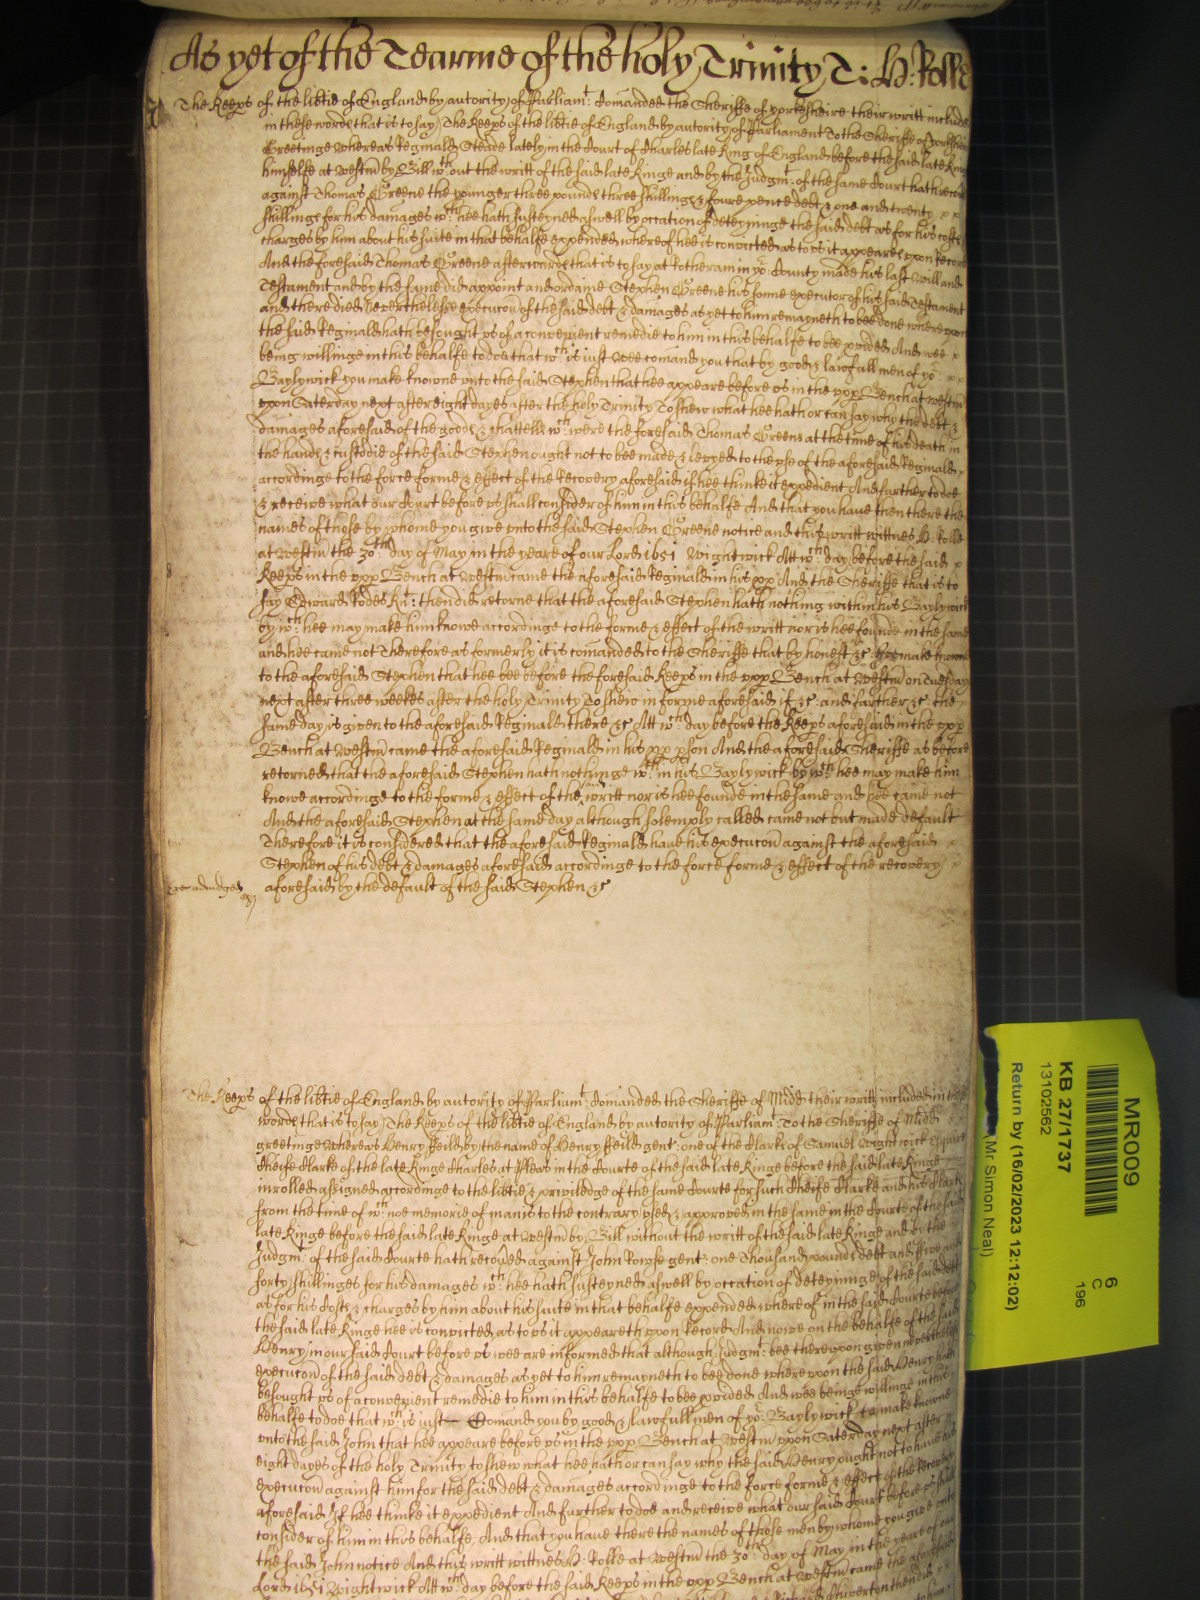 As yet of the Tearme of the holy Trinity T: H: Rolle
The Keeps of the libtie of England by autority of Parliamt: comanded the Sheriffe of yorkesheire their writt included
in these words that is to say The Keeps of the libtie of England by autority of Parliament To the Sheriffe of Yorkshire
Greetinge Whereas Reginald Steade lately in the Court of Charles late King of England before the said late King
himselfe at Westm by Bill wth:out the writt of the said late Kinge and by the Judgmt: of the same Court hath recoued
against Thomas Greene the younger three pounds three shillings & foure pence debt & one and twenty
shillings for his damages wch: hee hath susteyned aswell by occation of deteyninge the said debt as for his costs
charges by him about his suite in that behalfe expended whereof hee is convicted as to vs it appeares vpon record
And the foresaid Thomas Greene afterwards that is to say at Rotheram in yor: County made his last Will and
Testament and by the same did appoint and ordaine Stephen Greene his sonne executor of his said Testament
and there died Neverthelesse execucon of the said debt & damages as yet to him remayneth to bee done where vpon
the said Reginald hath besought vs of a convenient remedie to him in this behalfe to bee pvided And wee
being willinge in this behalfe to doe that wch: is iust Wee comand you that by good & lawfull men of yor:
Baylywick you make knowne vnto the said Stephen that hee appeare before vs in the vpp Bench at westm
vpon Saterday next after eight dayes after the holy Trinity To shew what hee hath or can say why the debt &
damages aforesaid of the goods & chattells wch: were the foresaid Thomas Greens at the time of his death in
the hands & custodie of the said Stephen ought not to bee made & levyed to the vse of the aforesaid Reginald
accordinge to the force forme & effect of the Recovery aforesaid if hee thinke it expedient And farther to doe
& receive what our Court before vs shall consider of him in this behalfe And that you have then there the
names of those by whome you give vnto the said Stephen Greene notice and this writt wittnes H: Rolle
at Westm the 30th: day of May in the yeare of our Lord 1651 Wightwick Att wch: day before the said
Keeps in the vpp Bench at Westm came the aforesaid Reginald in his pp And the Sheriffe that is to
say Edward Rodes Knt: then did retorne that the aforesaid Stephen hath nothing within his Baylywick
by wch: hee may make him knowe accordinge to the forme & effect of the writt nor is hee founde in the same
and hee came not Therefore as formerly it is comanded to the Sheriffe that by honest &c: hee make knowne
to the aforesaid Stephen that hee bee before the foresaid Keeps in the vpp Bench at Westm on Tuesday
next after three weekes after the holy Trinity To shew in forme aforesaid if &c: and farther &c: the
same day is given to the aforesaid Reginald there &c Att wch: day before the Keeps aforesaid in the vpp
Bench at Westm came the aforesaid Reginald in his pp pson And the aforesaid Sheriffe as before
retorned that the aforesaid Stephen hath nothinge wth: in his Baylywick by wch: hee may make him
knowe accordinge to the forme & effect of the said writt nor is hee founde in the same and hee came not
And the aforesaid Stephen at the same day although solemply called came not but made default
Therefore it is considered that the aforesaid Reginald have his execucon against the aforesaid
Stephen of his debt & damages aforesaid accordinge to the force forme & effect of the recovery
aforesaid by the default of the said Stephen &c
The Keeps of the libtie of England by autority of Parliamt: comanded the Sheriffe of Midd their writt included in these
words that is to say The Keeps of the libtie of England by autority of Parliamt: To the Sheriffe of Midd
greetinge Whereas Henry Feild by the name of Henry Feild gent: one of the Clarks of Samuel Wightwick Esquire
Cheife Clarke of the late Kinge Charles at Pleas in the Courte of the said late Kinge before the said late Kinge
inrolled assigned accordinge to the libties & priviledge of the same Courte for such Cheife Clarke and his Clarks
from the time of wch: noe memorie of man is to the contrary vsed & approved in the same in the Courte of the said
late Kinge before the said late Kinge at Westm by Bill without the writt of the said late Kinge and by the
Judgmt: of the said Courte hath recoued against John Rowse gent: one Thousand pounds debt and five and
forty shillings for his damages wch: hee hath susteyned aswell by occation of deteyninge of the said debt
as for his Costs & charges by him about his suite in that behalfe expended whereof in the said Courte before
the said late Kinge hee is convicted as to vs it appeareth vpon record And nowe on the behalfe of the said
Henry in our said Court before vs wee are informed that although Judgmt: bee therevpon given neverthelesse
execucon of the said debt & damages as yet to him remayneth to bee done where vpon the said Henry hath
besought vs of a convenient remedie to him in this behalfe to bee pvided And wee beinge willinge in this
behalfe to doe that wch: is iust Comand you by good & lawfull men of yor: Baylywick to make knowne
vnto the said John that hee appeare before vs in the vpp Bench at Westm vpon Saterday next after
eight dayes of the holy Trinity to shew what hee hath or can say why the said Henry ought not to have his
execucon against him for the said debt & damages accordinge to the force forme & effect of the Recovery
aforesaid If hee thinke it expedient And further to doe and receive what our said Court before vs shall
consider of him in this behalfe, And that you have there the names of those men by whome you give vnto
the said John notice And this writt wittnes H: Rolle at Westm the 30th: day of May in the yeare of our
Lord 1651 Wightwick Att wch: day before the said Keeps in the vpp Bench at Westm came the aforesaid
MR009
6
C
196
KB 27/1737
13102562
Return by (16/02/2023 12:12:02)
Mr Simon Neal)